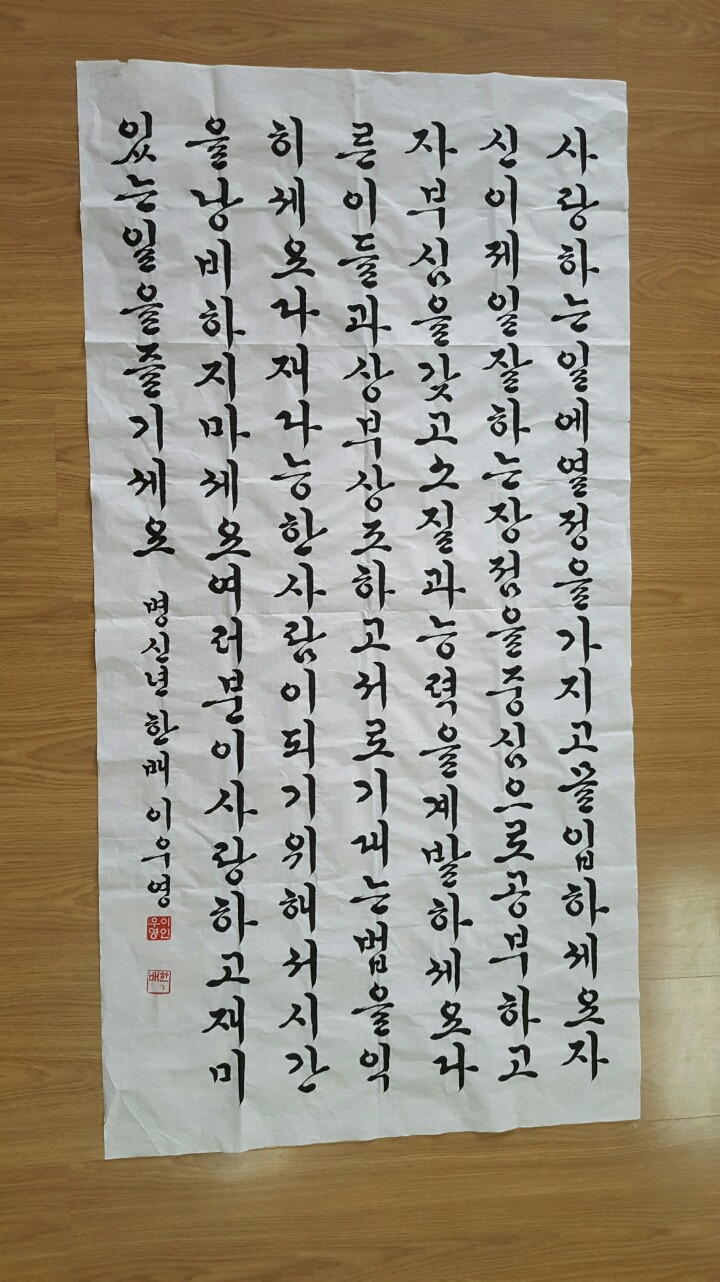 사랑하는일에열정을가지고몰입하세요자
신이제일잘하는장점을중심으로공부하고
자부심을갖고소질과능력을계발하세요다
른이들과상부상조하고서로기대는법을익
히세요다재다능한사람이되기위해서시간
을낭비하지마세요여러분이사랑하고재미
있는일을즐기세요
병신년한배이우영
이인
우영
한배